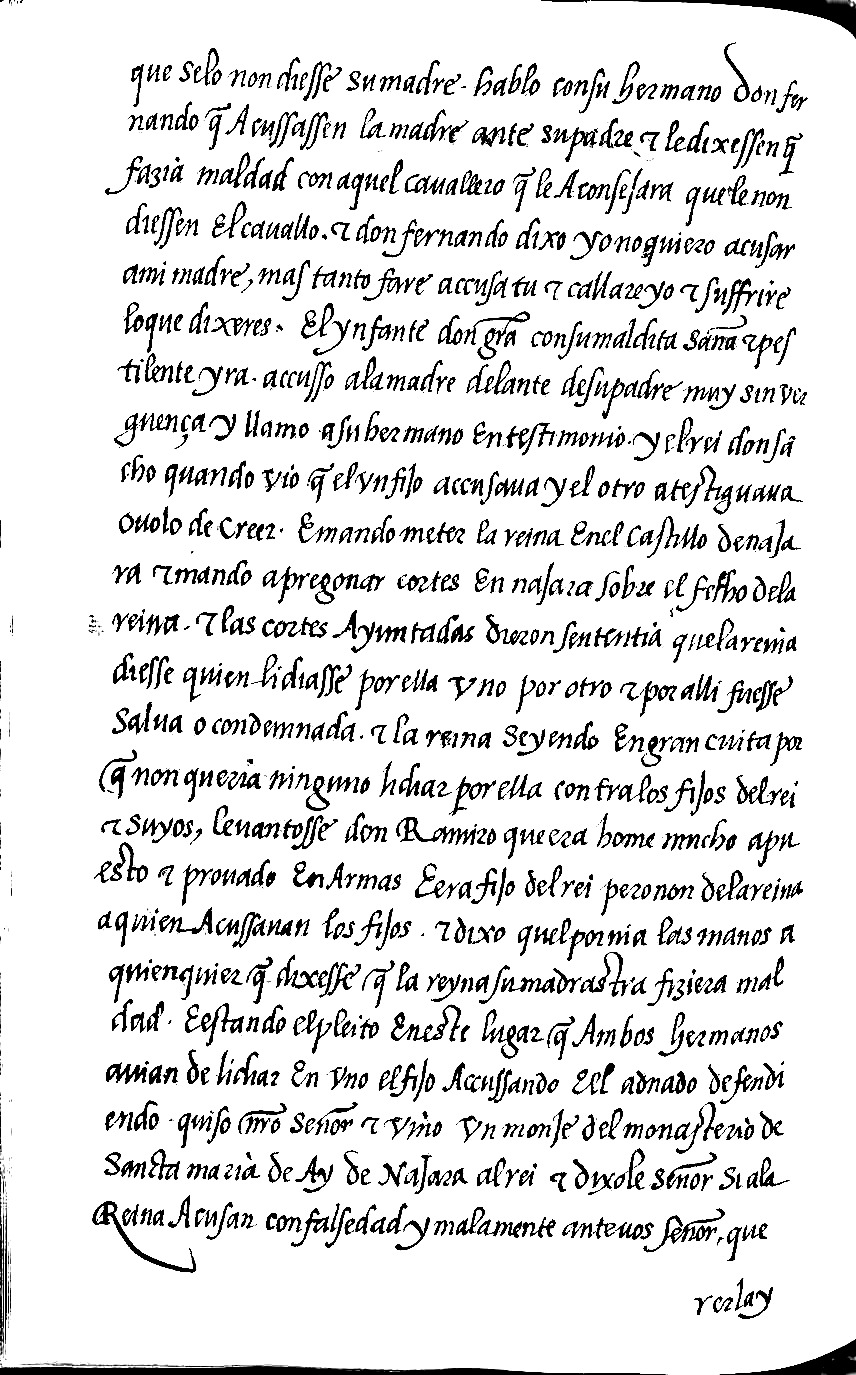 que selo non diesse su madre. hablo con su hermano don fer
nando q̃ Acussassen la madre ante su padre ⁊ le dixessen q̃
fazia maldad con aquel cavallero q̃ le Aconsejara que le non
diessen El cauallo. ⁊ don fernando dixo yo no quiero acusar
ami madre, mas tanto fare accusa tu ⁊ callare yo ⁊ suffrire
loque dixeres. El ynfante don gr̃a consumaldita saña ⁊ pes
tilente yra. accusso ala madre delante desupadre muy sin ver
guença y llamo asu hermano En testimonio. y el rei don sã
cho quando vio q̃ el vn fijo accusaua y el otro atestiguaua
ouolo de Creer. E mando meter la reina En el Castillo de naja
ra ⁊ mando apregonar cortes En najara sobre el fecho dela
reina. ⁊ las cortes Ayuntadas dieron sententia que la reina
diesse quien lidiasse por ella vno por otro ⁊ por alli fuesse
salua o condemnada. ⁊ la reina seyendo En gran cuita por
q̃ non queria ninguno lidiar por ella contra los fijos del rei
⁊ suyos, leuantosse don Ramiro que era home mucho apu
esto ⁊ prouado En Armas E era fijo del rei pero non dela reina
a quien Acussauan los fijos. ⁊ dixo quel pornia las manos a
quienquier q̃ dixesse q̃ la reyna su madrastra fiziera mal
dad. E estando el pleito En este lugar q̃ Ambos hermanos
auian de lidiar En vno el fijo Accussando E el adnado defendi
endo. quiso nr̃o señor ⁊ vino vn monje del monasterio de
Sancta maria de Ay de Najara al rei ⁊ dixole señor Si ala
Reina Acusan con falsedad y malamente ante uos señor, que
rerla y